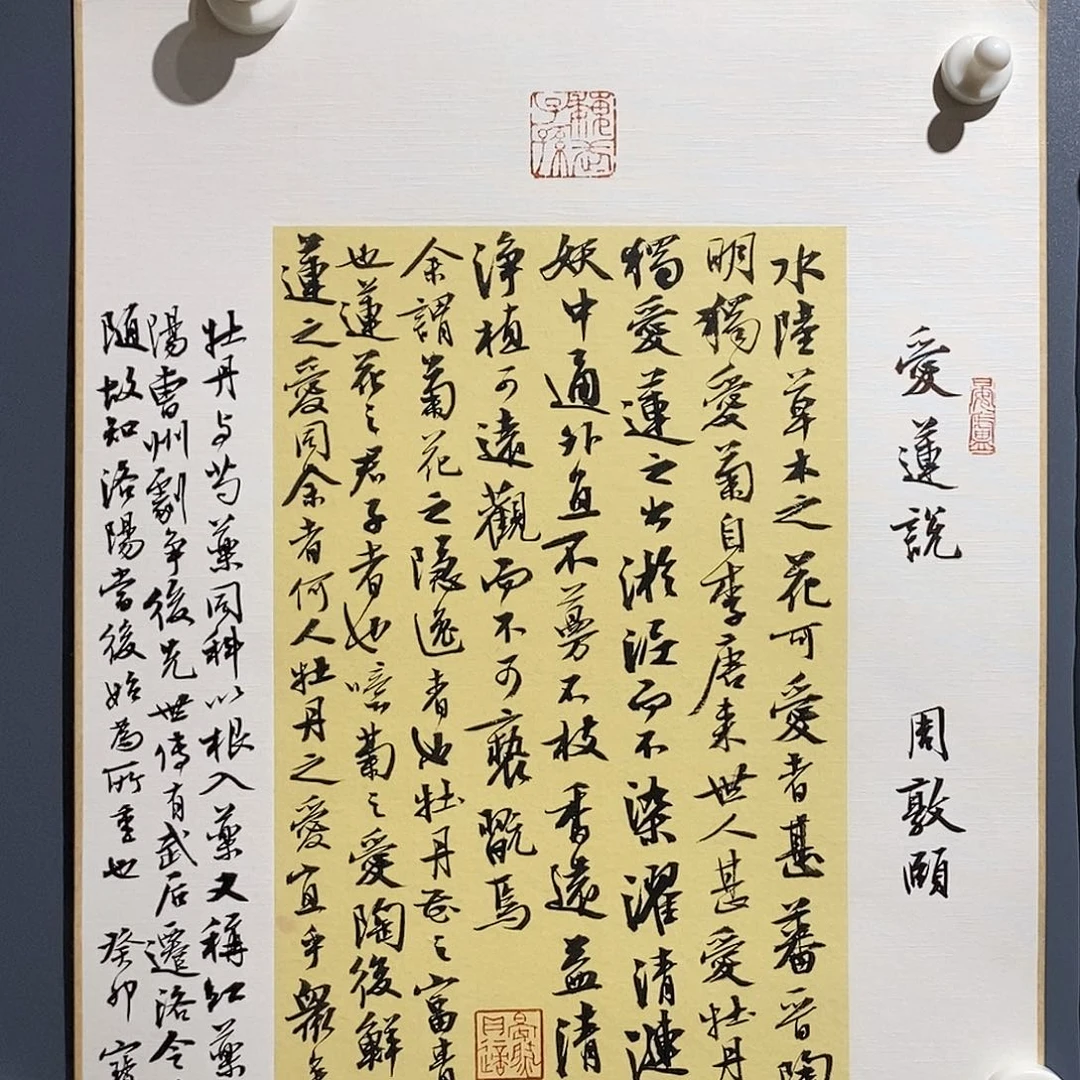 愛蓮説 周敦頤
水陸草木之花可愛者甚蕃晋陶
明獨愛菊自李唐来世人甚愛牡丹
獨愛蓮之出淤泥而不染濯清漣
妖中通外直不蔓不枝香遠益清
淨植可遠觀而不可褻翫焉
余謂菊花之隐逸者也牡丹花之富貴
也蓮花之君子者也噫菊之愛陶後鮮
蓮之愛同余者何人牡丹之愛宜乎眾
牡丹与芍藥同科以根入藥又稱紅藥
陽曹州劇争後先世傳有武后遷洛令
随故知洛陽當後始為所重也 癸卯